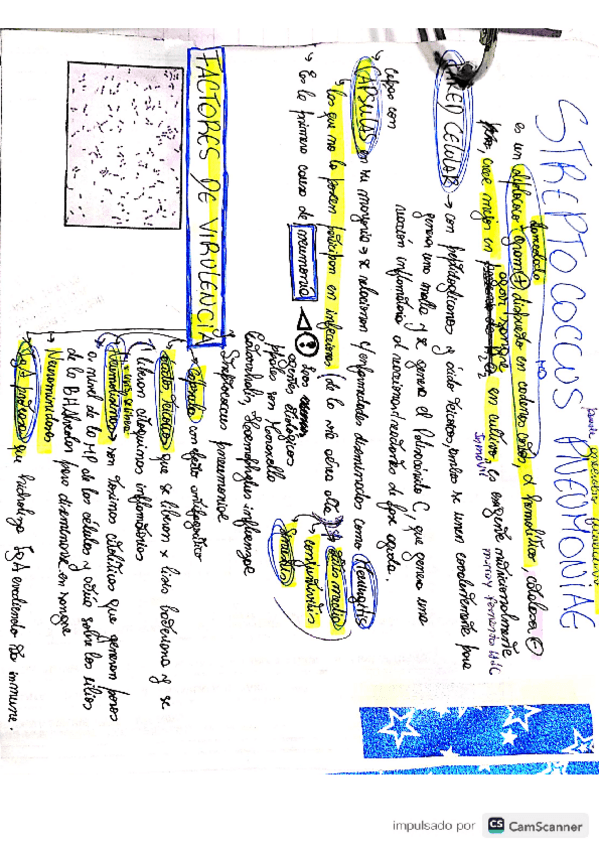 STREPTOCOCCUS PNEUMONIAE
es un diplococo gram(+), dispuesto en cadenas cortas, α hemolítico, catalasa ⊖
lanceolado
NO
crece mejor en agar sangre en cultivo es exigente nutricionalmente
inmóvil
PARED CELULAR → con peptidoglicanos y ácido teicoico, ambos se unen covalentemente para
genera una malla y se genera el Polisacárido C, que genera una
reacción inflamatoria al reaccionar c/reactantes de fase aguda.
Cepas con
CÁPSULAS en su mayoría → se relacionan c/enfermedades diseminadas como Meningitis
Las que no la poseen participan en infecciones (de la vía aérea alta) otitis media
conjuntivitis
Sinusitis
Es la primera causa de neumonía
Los
agentes etiológicos
son Moraxella
Catarrhalis, Haemophilus influenzae
Streptococcus pneumoniae
FACTORES DE VIRULENCIA
cápsula con efecto antifagocítico
ácidos teicoicos que se liberan x lisis bacteriana y se
liberan citoquinas inflamatorias
Neumolisinas → son toxinas citolíticas que generan poros
a nivel de la MP de las células y actúa sobre los cilios
de la para diseminarse en sangre
Neuraminidasas
IgA proteasa que hidroliza IgA evadiendo rta inmune.
impulsado por CS CamScanner